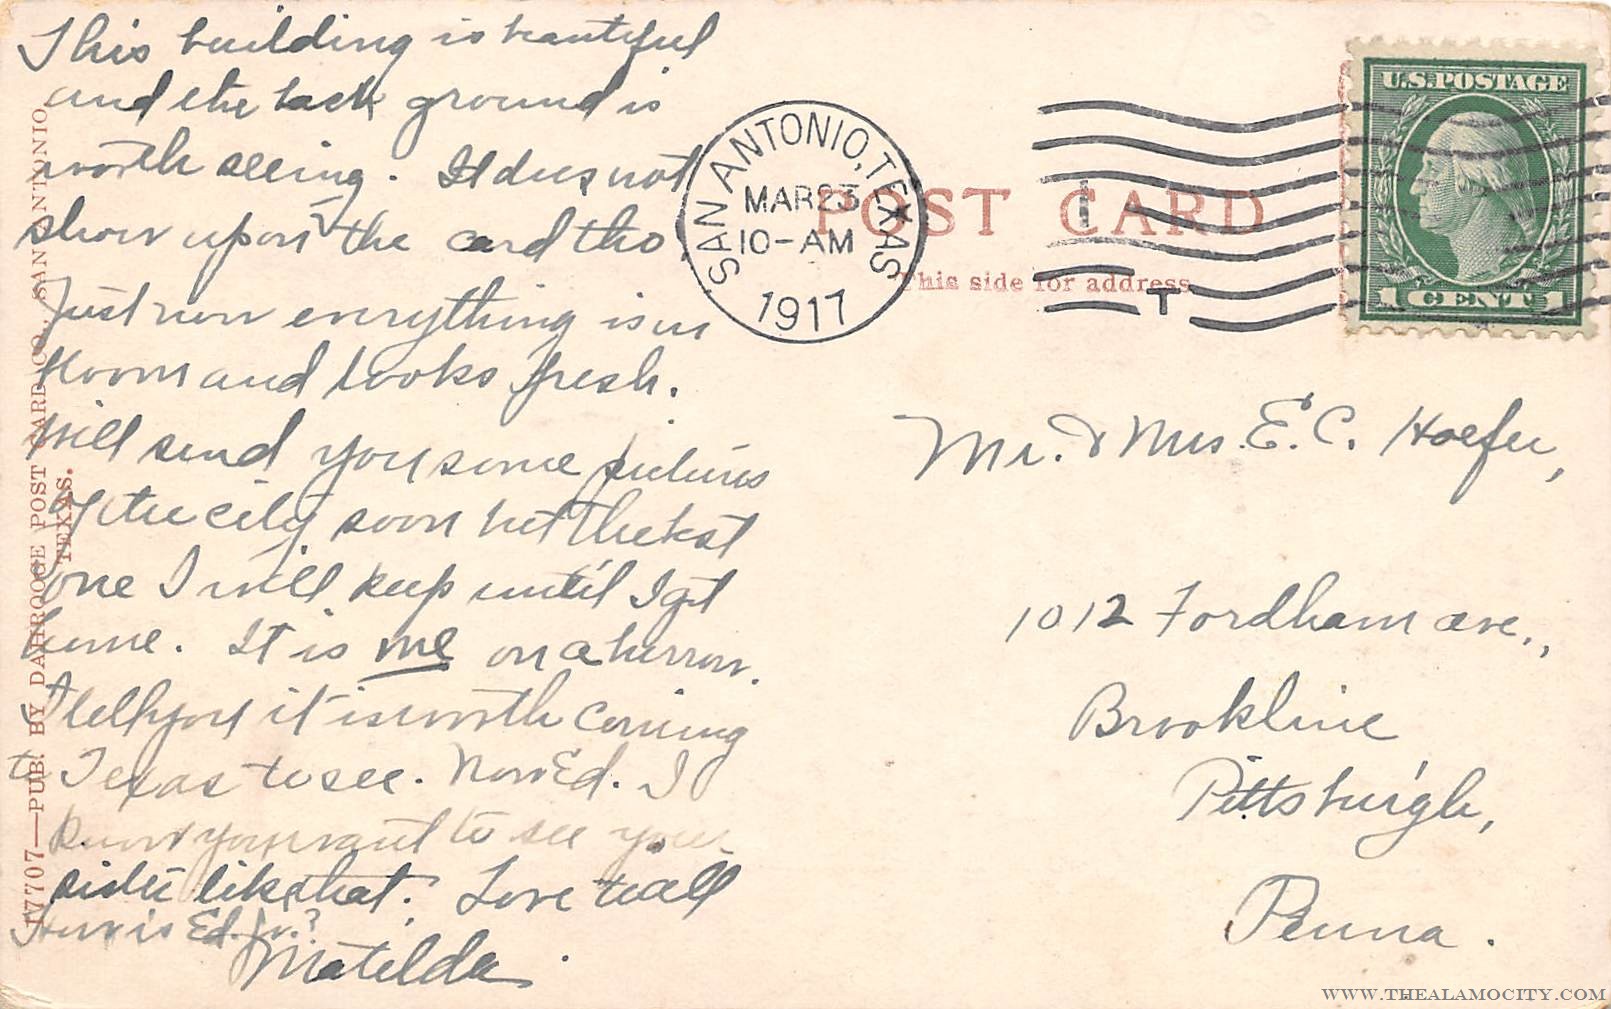 This building is beautiful
and the back ground is
worth seeing. It does not
show upon the card tho
Just now everything is in
bloom and looks fresh.
Will send you some pictures
of the city soon but the best
one I will keep until I get
home. It is me on a burrow.
I tell you it is worth coming
to Texas to see. Now Ed. I
know you want to see your
sister like that. Love to all
How is Ed. Jr.?
Matilda.
17707—PUB. BY DAHROOGE POST CARD CO., SAN ANTONIO,
TEXAS.
SAN ANTONIO, TEXAS
MAR 23
10-AM
1917
1
T
POST CARD
This side for address
U.S. POSTAGE
1 CENT 1
Mr. & Mrs. E. C. Hoefer,
1012 Fordham ave.,
Brookline
Pittsburgh,
Penna.
WWW.THEALAMOCITY.COM